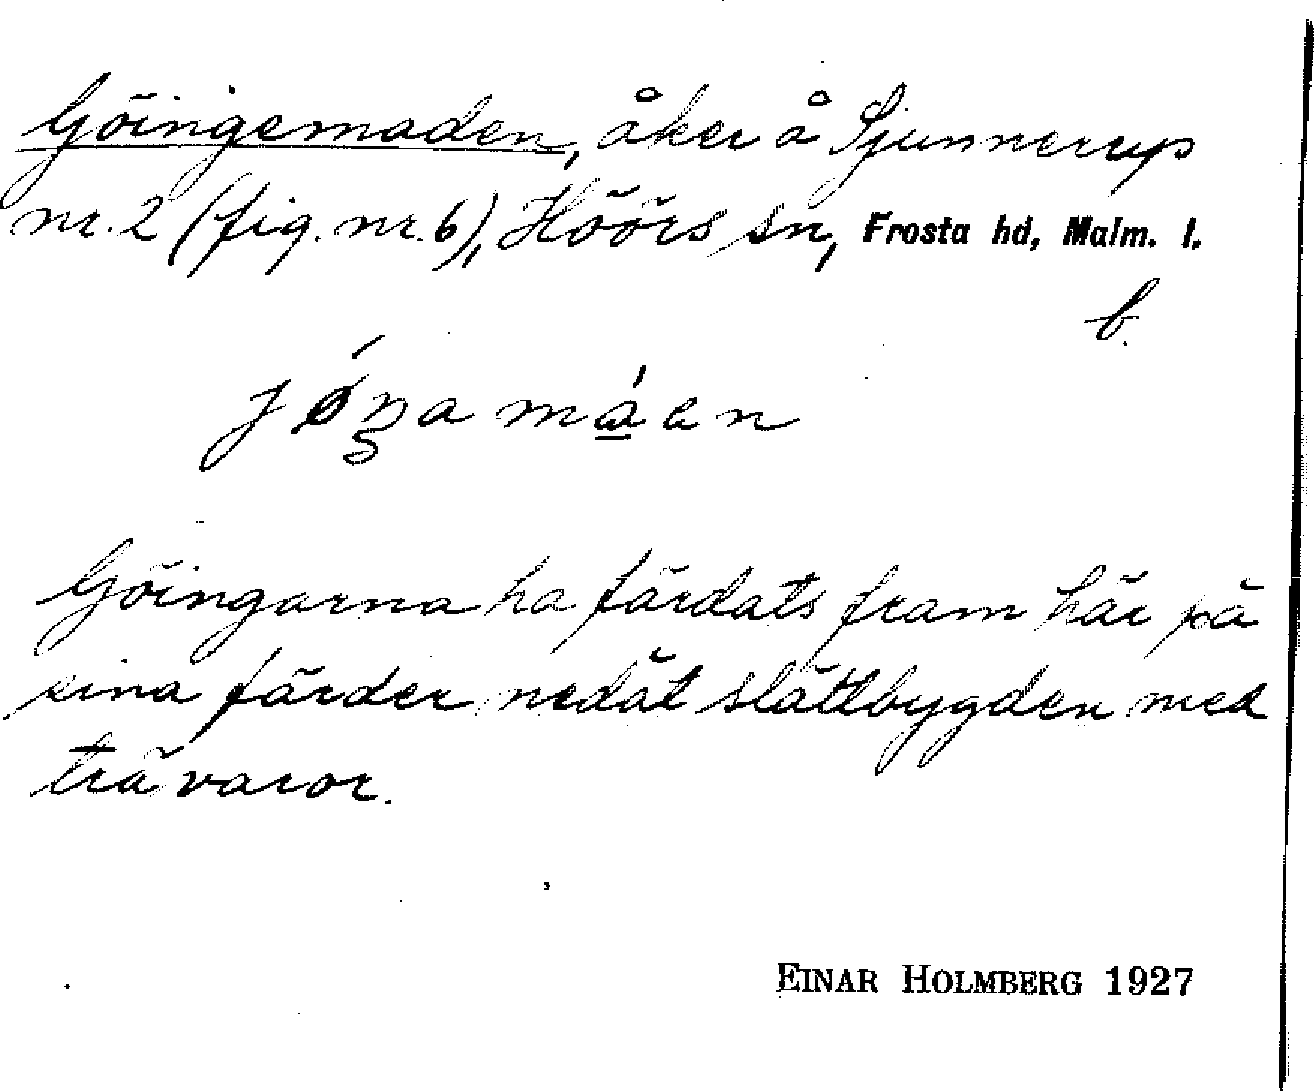 Göingemaden, åker å Sjunnerup
nr. 2 (fig. nr. 6), Höörs sn, Frosta hd, Malm. l.
b.
jǿŋa máen
Göingarna ha färdats fram här på
sina färder nedåt slättbygden med
trävaror.
EINAR HOLMBERG 1927